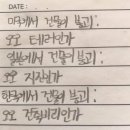 DATE:
미국에서 건물이 붕괴:
오오 테러인가
일본에서 건물이 붕괴:
오오 지진인가
한국에서 건물이 붕괴:
오오 건축비리인가